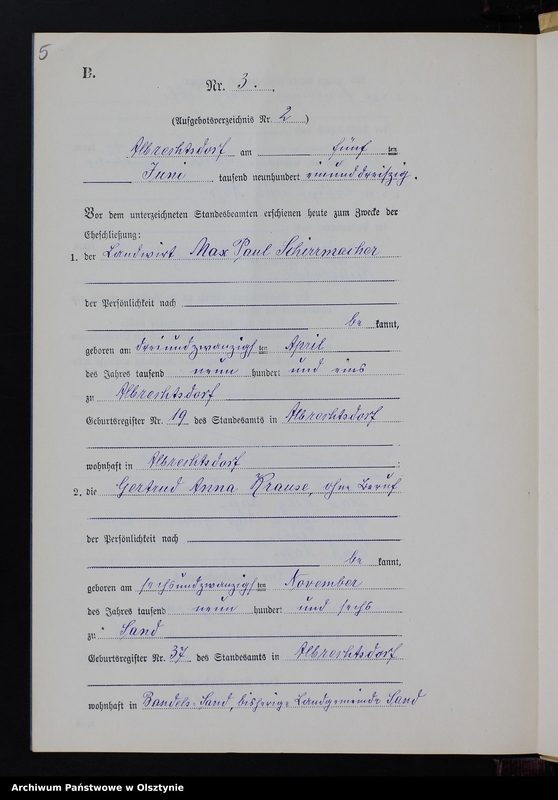 5
B.
Nr. 3.
(Aufgebotsverzeichnis Nr. 2)
Albrechtsdorf am fünften
Juni tausend neunhundert einunddreiszig.
Vor dem unterzeichneten Standesbeamten erschienen heute zum Zwecke der
Eheschließung:
1. der Landwirt Max Paul Schirrmacher
der Persönlichkeit nach
bekannt,
geboren am dreiundzwanzigsten April
des Jahres tausend neun hundert und eins
zu Albrechtsdorf
Geburtsregister Nr. 19 des Standesamts in Albrechtsdorf
wohnhaft in Albrechtsdorf
2. die Gertrud Anna Krause, ohne Beruf
der Persönlichkeit nach
bekannt,
geboren am sechsundzwanzigsten November
des Jahres tausend neun hundert und sechs
zu Sand
Geburtsregister Nr. 37 des Standesamts in Albrechtsdorf
wohnhaft in Bandels-Sand, bisherige Landgemeinde Sand
Archiwum Państwowe w Olsztynie